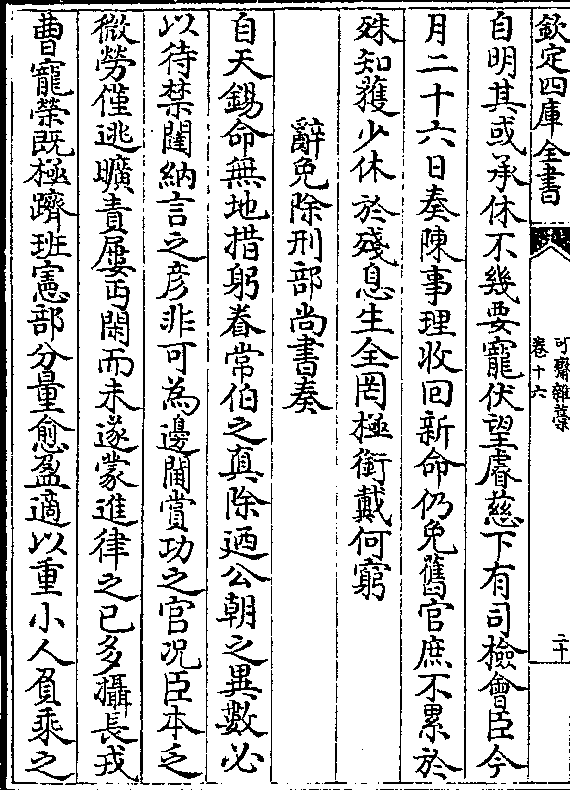 欽定四庫全書
可齋雜藁
卷十六
二十
自明其或承休不幾要寵伏望睿慈下有司檢會臣今
月二十六日奏陳事理收回新命仍免舊官庶不累於
殊知獲少休於殘息生全罔極銜戴何窮
辭免除刑部尚書奏
自天錫命無地措躬眷常伯之真除廼公朝之異數必
以待禁闥納言之彥非可為邊閫賞功之官况臣本乏
微勞僅逃曠責屢丐閑而未遂蒙進律之已多攝長戎
曹寵榮既極躋班憲部分量愈盈適以重小人負乘之